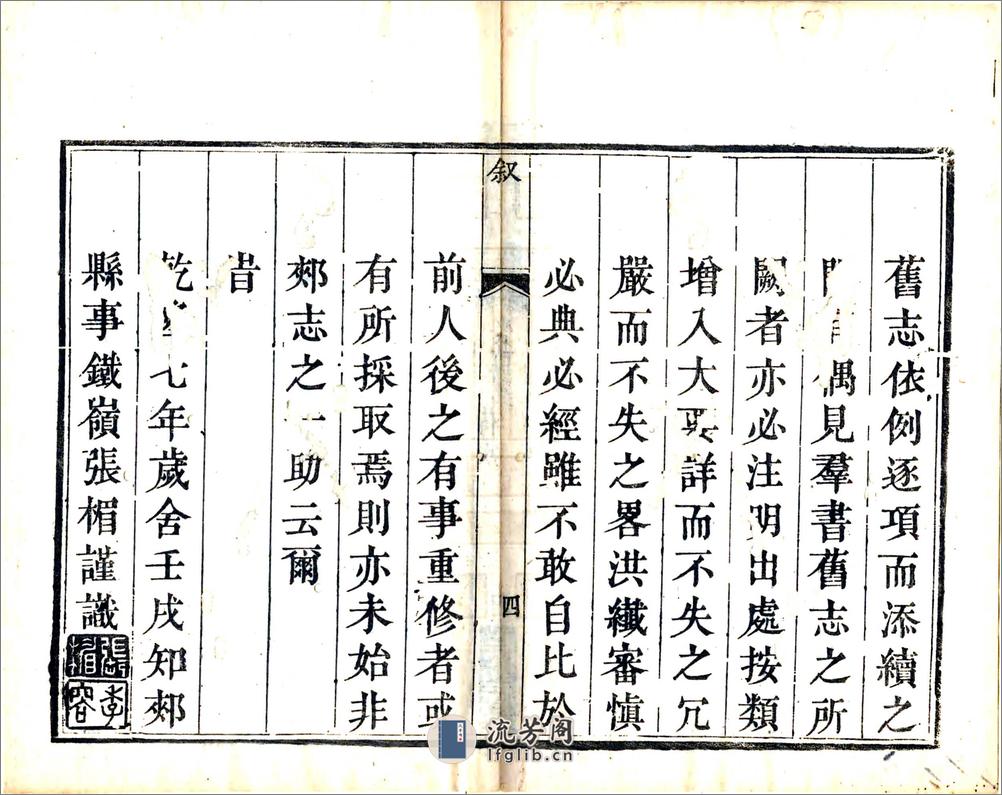 舊志依例逐項而添續之
偶見羣書舊志之所
闕者亦必注明出處按類
增入大要詳而不失之冗
嚴而不失之畧洪纖審慎
必典必經雖不敢自比於
叙
四
前人後之有事重修者或
有所採取焉則亦未始非
郯志之一助云爾
旹
乾隆七年歲舍壬戌知郯
縣事鐵嶺張楣謹識
張楣
流芳阁
lfglib.cn